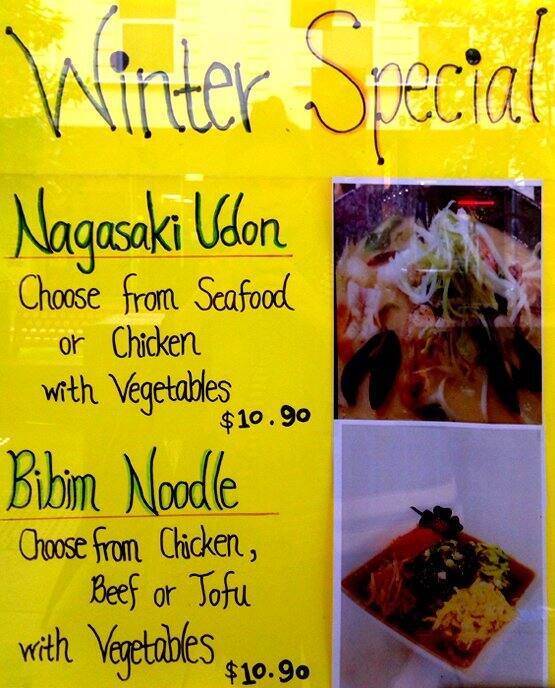 Winter Special
Nagasaki Udon
Choose from Seafood
or Chicken
with Vegetables
$10.90
Bibim Noodle
Choose from Chicken,
Beef or Tofu
with Vegetables
$10.90